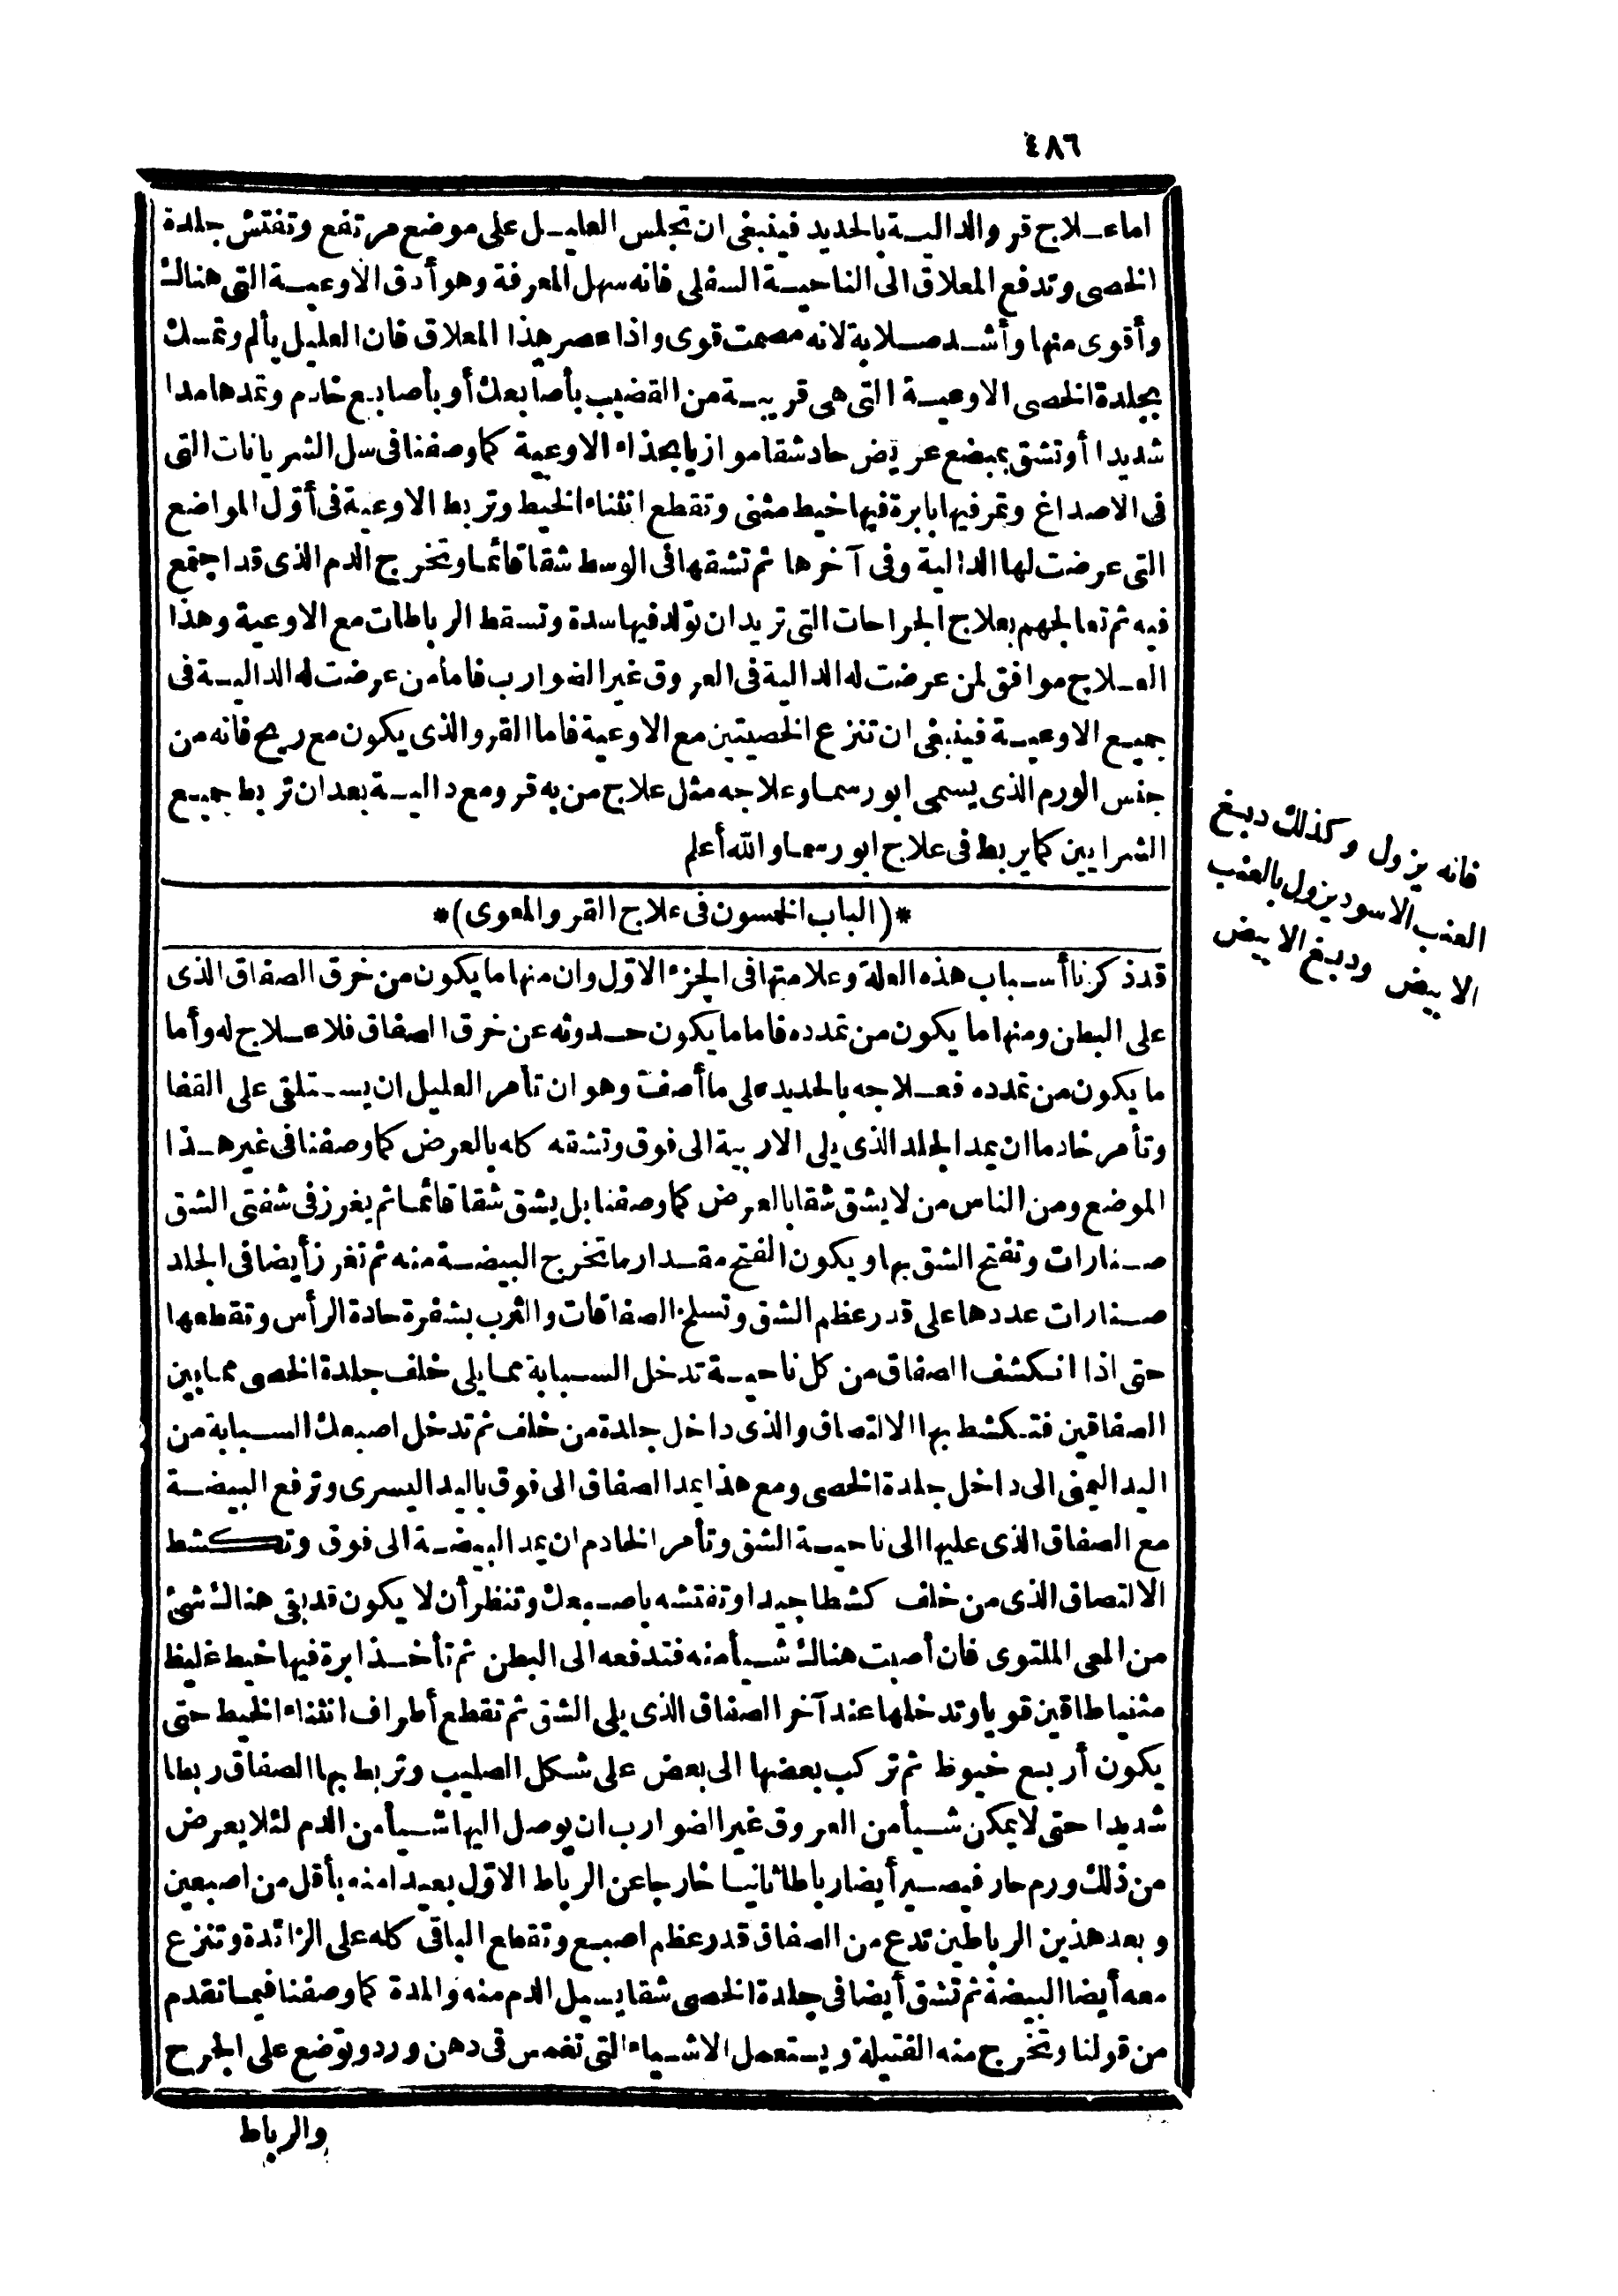 ٤٨٦
اما علاج قرو الدالية بالحديد فينبغى ان تجلس العليل على موضع مرتفع وتفتش جلدة
الخصى وتدفع المعلاق الى الناحية السفلى فانه سهل المعرفة وهو أدق الاوعية التى هناك
وأقوى منها وأشد صلابة لانه مصمت قوى واذا عصر هذا المعلاق فان العليل يألم وتمسك
بجلدة الخصى الاوعية التى هى قريبة من القضيب بأصابعك أو بأصابع خادم وتمدها مدا
شديدا أو تشق بمبضع عريض حاد شقا موازيا بحذاء الاوعية كما وصفنا فى سل الشريانات التى
فى الاصداغ وتمر فيها بابرة فيها خيط مثنى وتقطع انثناء الخيط وتربط الاوعية فى أول المواضع
التى عرضت لها الدالية وفى آخرها ثم تشقها فى الوسط شقا قائما وتخرج الدم الذى قد اجتمع
فيه ثم تعالجهم بعلاج الجراحات التى تريد ان تولد فيها سدة وتسقط الرباطات مع الاوعية وهذا
العلاج موافق لمن عرضت له الدالية فى العروق غير الضوارب فاما من عرضت له الدالية فى
جميع الاوعية فينبغى ان تنزع الخصيتين مع الاوعية فاما القرو الذى يكون مع ريح فانه من
جنس الورم الذى يسمى ابورسما وعلاجه مثل علاج من به قرو مع دالية بعد ان تربط جميع
الشرايين كما يربط فى علاج ابورسما والله أعلم
*(الباب الخمسون فى علاج القرو المعوى)*
قد ذكرنا أسباب هذه العلة وعلامتها فى الجزء الاول وان منها ما يكون من خرق الصفاق الذى
على البطن ومنها ما يكون من تمدده فاما ما يكون حدوثه عن خرق الصفاق فلا علاج له وأما
ما يكون من تمدده فعلاجه بالحديد على ما أصف وهو ان تأمر العليل ان يستلقى على القفا
وتأمر خادما ان يمد الجلد الذى يلى الاربية الى فوق وتشقه كله بالعرض كما وصفنا فى غير هذا
الموضع ومن الناس من لا يشق شقا بالعرض كما وصفنا بل يشق شقا قائما ثم يغرز فى شفتى الشق
صنارات وتفتح الشق بها ويكون الفتح مقدار ما تخرج البيضة منه ثم تغرز أيضا فى الجلد
صنارات عددها على قدر عظم الشق وتسلخ الصفاقات والثرب بشفرة حادة الرأس وتقطعها
حتى اذا انكشف الصفاق من كل ناحية تدخل السبابة مما يلى خلف جلدة الخصى مما بين
الصفاقين فتكشط بها الالتصاق والذى داخل جلدة من خلف ثم تدخل اصبعك السبابة من
اليد اليمنى الى داخل جلدة الخصى ومع هذا يمد الصفاق الى فوق باليد اليسرى وترفع البيضة
مع الصفاق الذى عليها الى ناحية الشق وتأمر الخادم ان يمد البيضة الى فوق وتكشط
الالتصاق الذى من خلف كشطا جيدا وتفتشه باصبعك وتنظر أن لا يكون قد بقى هناك شئ
من المعى الملتوى فان أصبت هناك شيأ منه فتدفعه الى البطن ثم تأخذ ابرة فيها خيط غليظ
مثنيا طاقين قويا وتدخلها عند آخر الصفاق الذى يلى الشق ثم تقطع أطراف انثناء الخيط حتى
يكون أربع خيوط ثم تركب بعضها الى بعض على شكل الصليب وتربط بها الصفاق ربطا
شديدا حتى لا يمكن شيأ من العروق غير الضوارب ان يوصل اليها شيأ من الدم لئلا يعرض
من ذلك ورم حار فيصير أيضا رباطا ثانيا خارجا عن الرباط الاول بعيدا منه بأقل من اصبعين
وبعد هذين الرباطين تدع من الصفاق قدر عظم اصبع وتقطع الباقى كله على الزائدة وتنزع
معه أيضا البيضة ثم تشق أيضا فى جلدة الخصى شقا يسيل الدم منه والمدة كما وصفنا فيما تقدم
من قولنا وتخرج منه الفتيلة ويستعمل الاشياء التى تغمس فى دهن ورد وتوضع على الجرح
والرباط
فانه يزول وكذلك دبغ
العنب الاسود يزول بالعنب
الابيض ودبغ الابيض